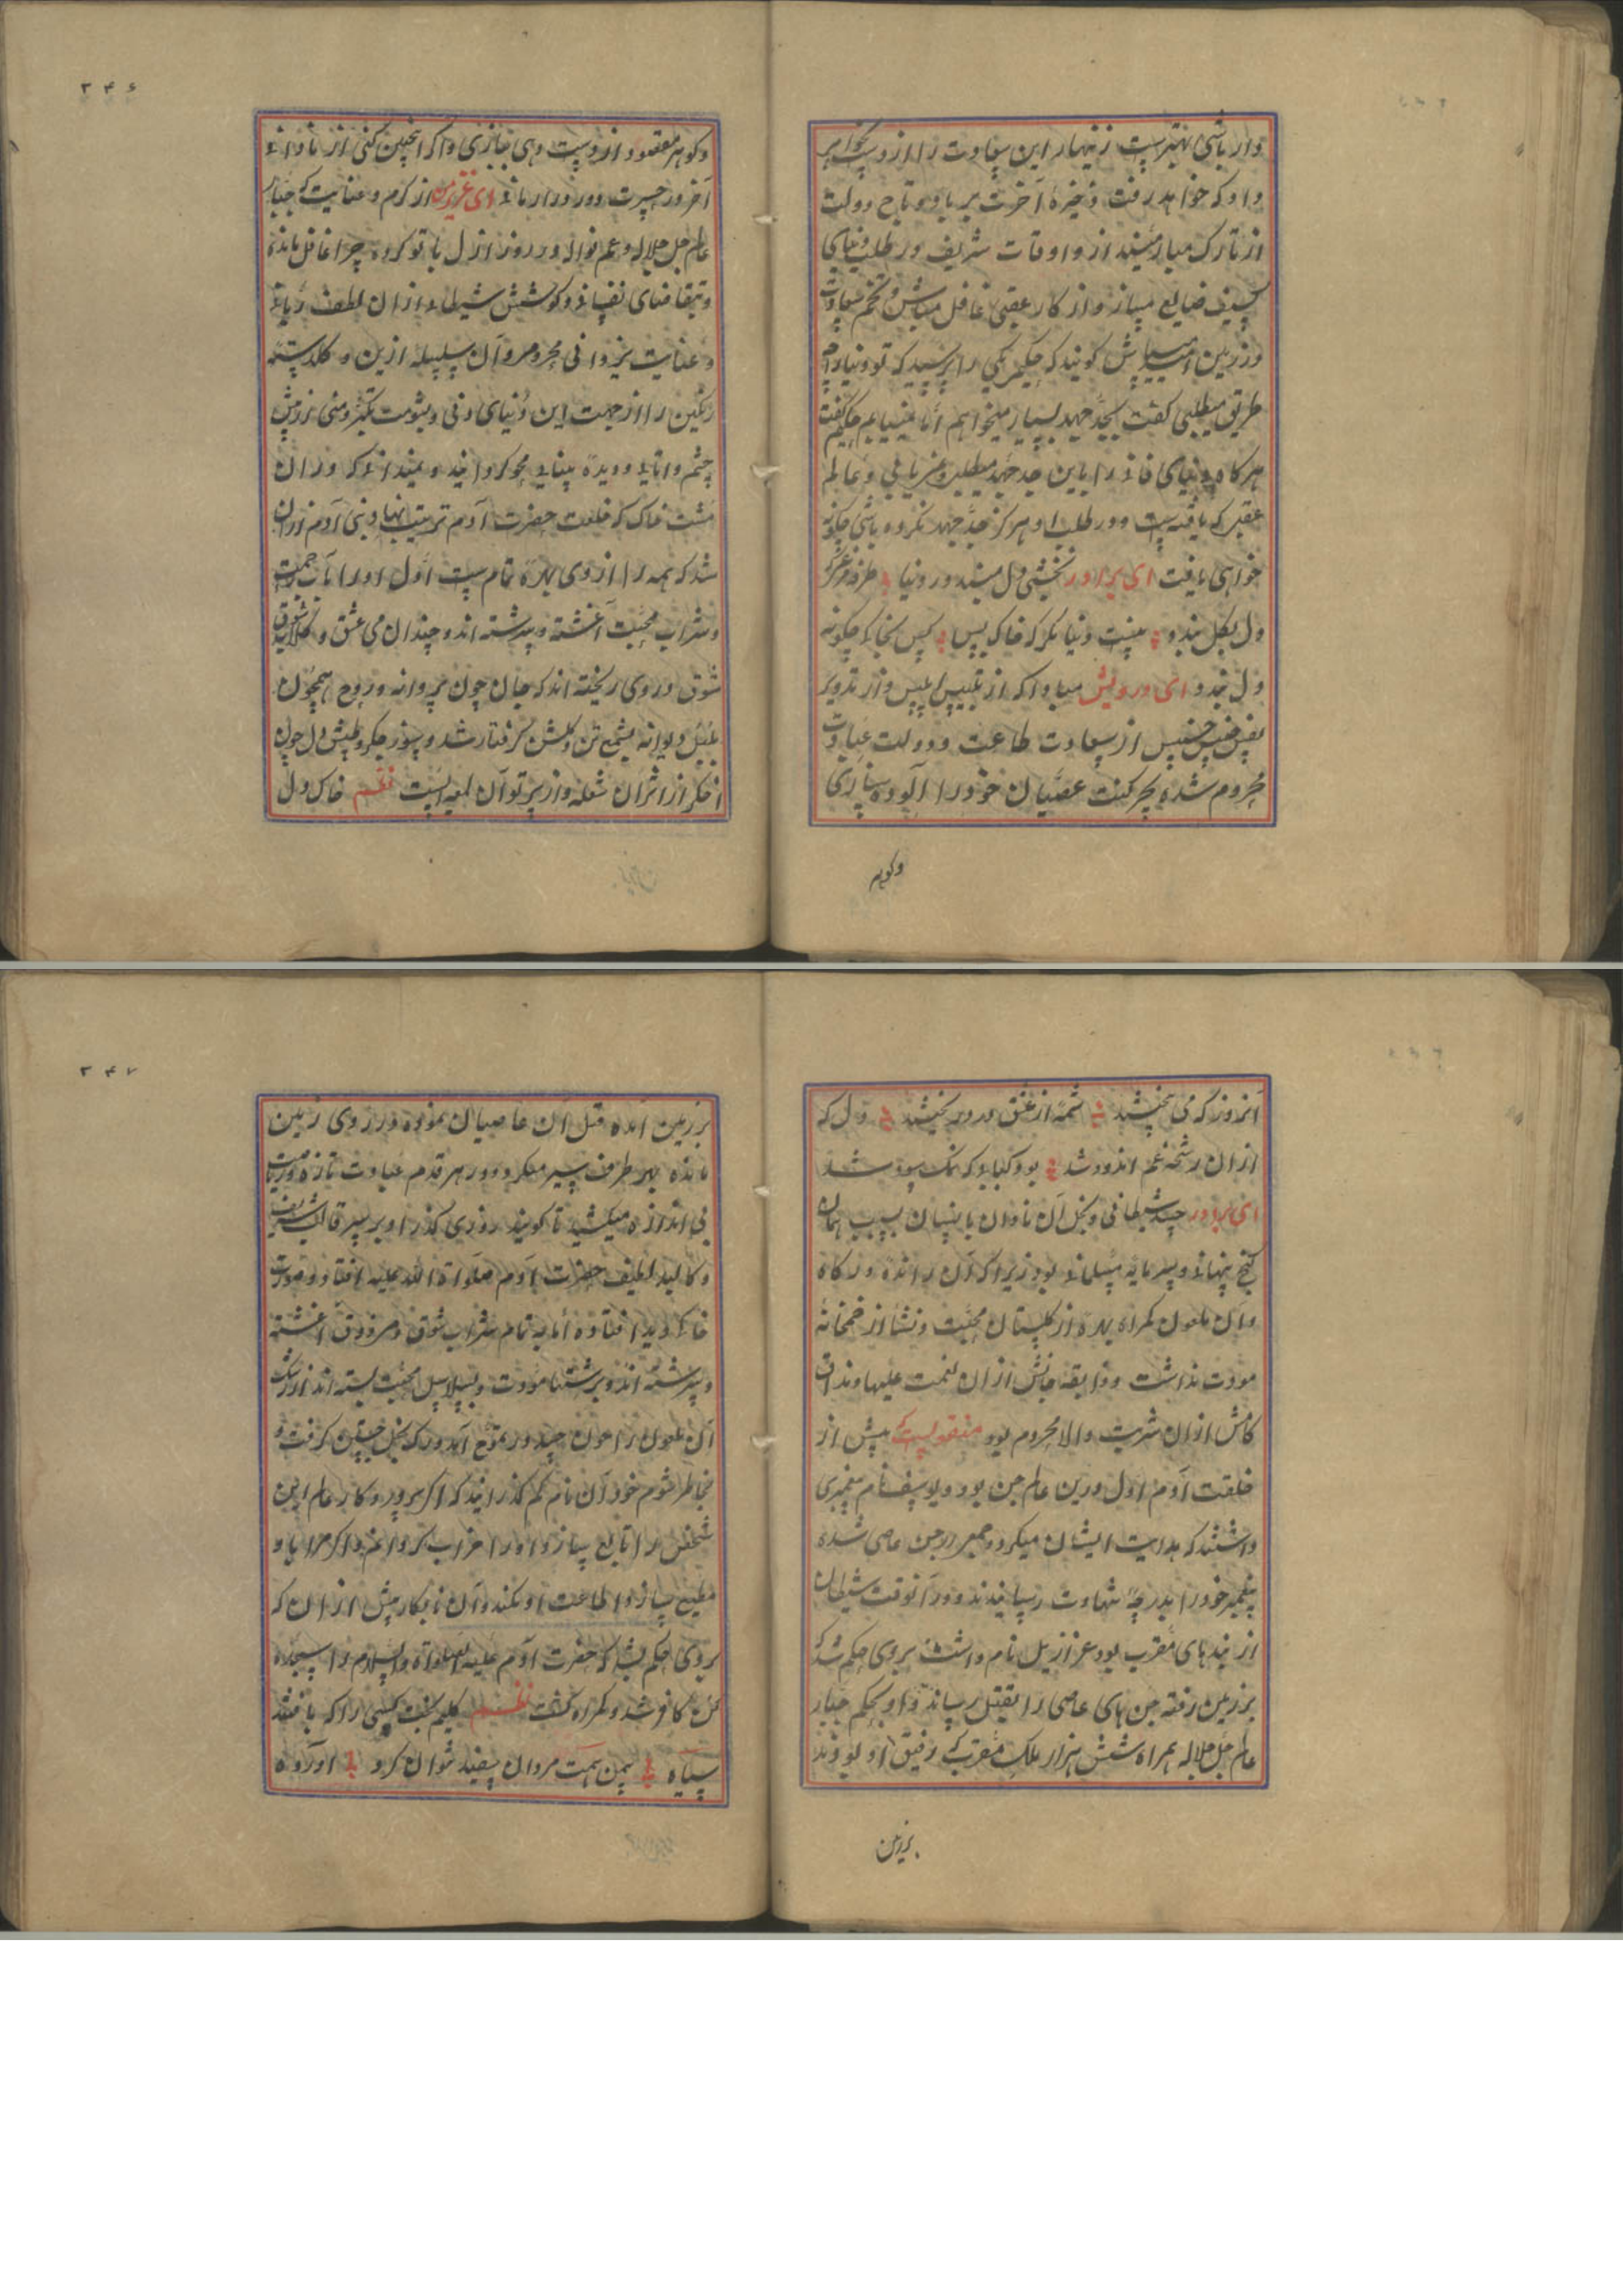 دار باشی بهترست زنهار این سعادت را از دست بجواهر
داد که خواهد رفت ذخیرهٔ آخرت بر باد و تاج دولت
از تارک میارمیند از و اوقات شریف در طلب دنیای
کثیف ضایع مساز و از کار عقبی غافل مباش و تخم سعادت
در زمین گویند که حکیم یکی را پرسید که تو دنیا را
طریق میطلبی گفت بجد جهد بسیار میخواهم اما نمییابم حکیم گفت
هرکاه دنیای فانی را باین جد جهد میطلبی و نمی یابی و عالم
عقبی که باقیست و در طلب او هرکز جد جهد نکرده باشی چکونه
خواهی یافت ای برادر نخشبی دل مبند در دنیا
دل بکل بندد دنیا مکر که خاکی پس کس بخاک چکونه
دل بندد ای درویش مبادا که از تلبیس ابلیس و از تذویر
نفس خسیس از سعادت طاعت و دولت عبادت
محروم شده بچرکنت عصیان خود را آلوده سازی
وکوهر
۲۴۶
وکوهر مقصود از دست دهی بنازی و اکر اینچنین کنی از نادانی
آخر در حسرت و درد در مانی ای عزیز من از کرم و عنایت که جناب
عالم جل جلاله و عم نواله در روز ازل با تو کرده چرا غافل مانده
و تقاضای نفسانی و کوشش شیطانی از ان لطف ربانی
و عنایت یزدانی محروم مرو آن سلسله ازین و کلدسته
رنکین را از جهت این دنیای دنی و بشومت تکبر و منی
چشم دانایی و دیدهٔ بینایی محو کردانید و نمیدانی که در ان
مشت خاک که خلقت حضرت آدم ترتیب نهاد بنی آدم از ان
شد که همه را از وی بهرهٔ تمام ست اول او را بآب رحمت
و شراب محبت آغشته و سرشته اند و چندان می عشق و
شوق در وی ریخته اند که جان چون پروانه و روح همچون
بلبل دیوانه بشمع تن و کلشن کرفتار شد و بسوز جکر و طپش دل چون
اخکر از اثر ان شعله و از پرتو آن لمعه است نظم خاک دل
آنروز که می بیختند شمه از عشق درو ریختند دل که
از ان رشحه غم اندود شد بود کبابی که نمک سود شد
ای برادر حسد شیطانی و بخل آن نادان با انسان بسبب همان
کنج پنهانی و سرمایه مسلمانی بود زیرا که آن رانده درکاه
و آن ملعون کمراه بهره از کلستان محبت و نشأ از خمخانه
مودت نداشت و ذایقه جانش از ان نعمت علیا و مذاق
کامش از ان شربت والا محروم بود منقولست که پیش از
خلقت آدم اول درین عالم جن بود و یوسف نام پیغمبری
داشتند که هدایت ایشان میکرد و جمعی از جن عاصی شده
پیغمبر خود را بدرجهٔ شهادت رسانیدند و در آنوقت شیطان
از بندهای مقرب بود عزازیل نام داشت بروی حکم شد که
بر زمین رفته جن های عاصی را بقتل رساند و او بحکم جبار
عالم جل جلاله همراه شش هزار ملک مقرب که رفیق او بودند
بر زمین
۲۴۷
بر زمین آمده قتل آن عاصیان نموده در روی زمین
مانده بهر طرف سیر میکرد و در هر قدم عبادت تازه و ریاضت
بی اندازه میکشید تا کویند روزی کذر او بر سر قالب شریف
و کالبد لطیف حضرت آدم صلواة الله علیه افتاد و صورت
خاکی دید افتاده اما به تمام شراب شوق و می ذوق آغشته
و سرشته اند و برشتهٔ مودت و بسلاسل محبت بسته اند از رشک
آن ملعون را خون حسد در موج آمد و رک بخل جنبیدن کرفت و
بخاطر شوم خود آن نام کم کذرانید که اکر پروردکار عالم این
شخص را تابع سازد او را خراب کردانم و اکر مرا باو
مطیع سازد اطاعت او نکند و آن نابکار پیش از ان که
بروی حکم شد که حضرت آدم علیه الصلواة والسلام را سجده
کن کافر شد و کمراه کشت نظم کلیم بخت کسی را که بافتند
سیاه بهمت مردان سفید نتوان کرد آورده